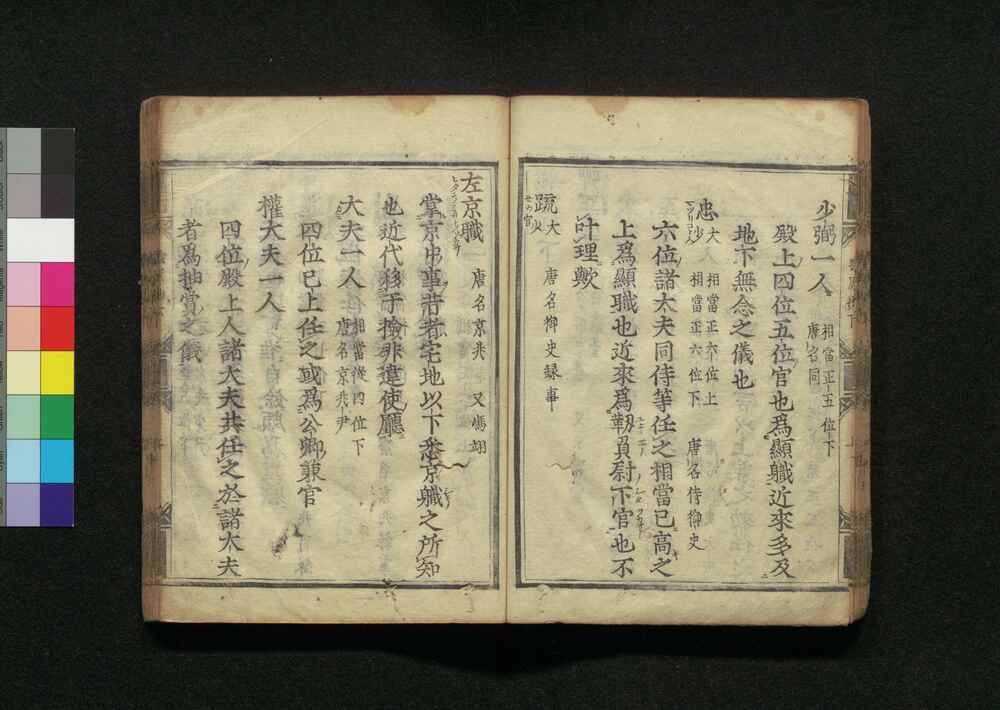 少弼一人 相當正五位下
唐名同
殿上四位五位官也爲顯職近來多及
地下無念之儀也
忠 大 相當正六位上
少 相當正六位下 唐名侍御史
六位諸大夫同侍等任之相當已高之
上爲顯職也近來爲靱負尉下官也不
叶理歟
疏 大
少 唐名御史録事
左京職 唐名京兆 又馮翊
掌京中事若者宅地以下悉京職之所知
也近代移于撿非違使廳
大夫一人 相當從四位下
唐名京兆尹
四位已上任之或爲公卿兼官
權大夫一人
四位殿上人諸大夫共任之於諸大夫
者爲抽賞之儀